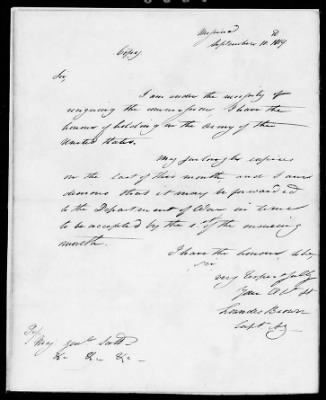 September 10. 1819
Copy
Sir,
I am under the necessity of
resigning the commission I have the
honour of holding in the army of the
United States.
My furlough expires
on the last of this month and I am
desirous that it may be forwarded
to the Department of War in time
to be accepted by the 1st. of the ensuing
month.
I have the honour to be
Sir
very respectfully
Your Obt St
Brown
Capt.
To
Maj Genl. Scott
&c &c &c